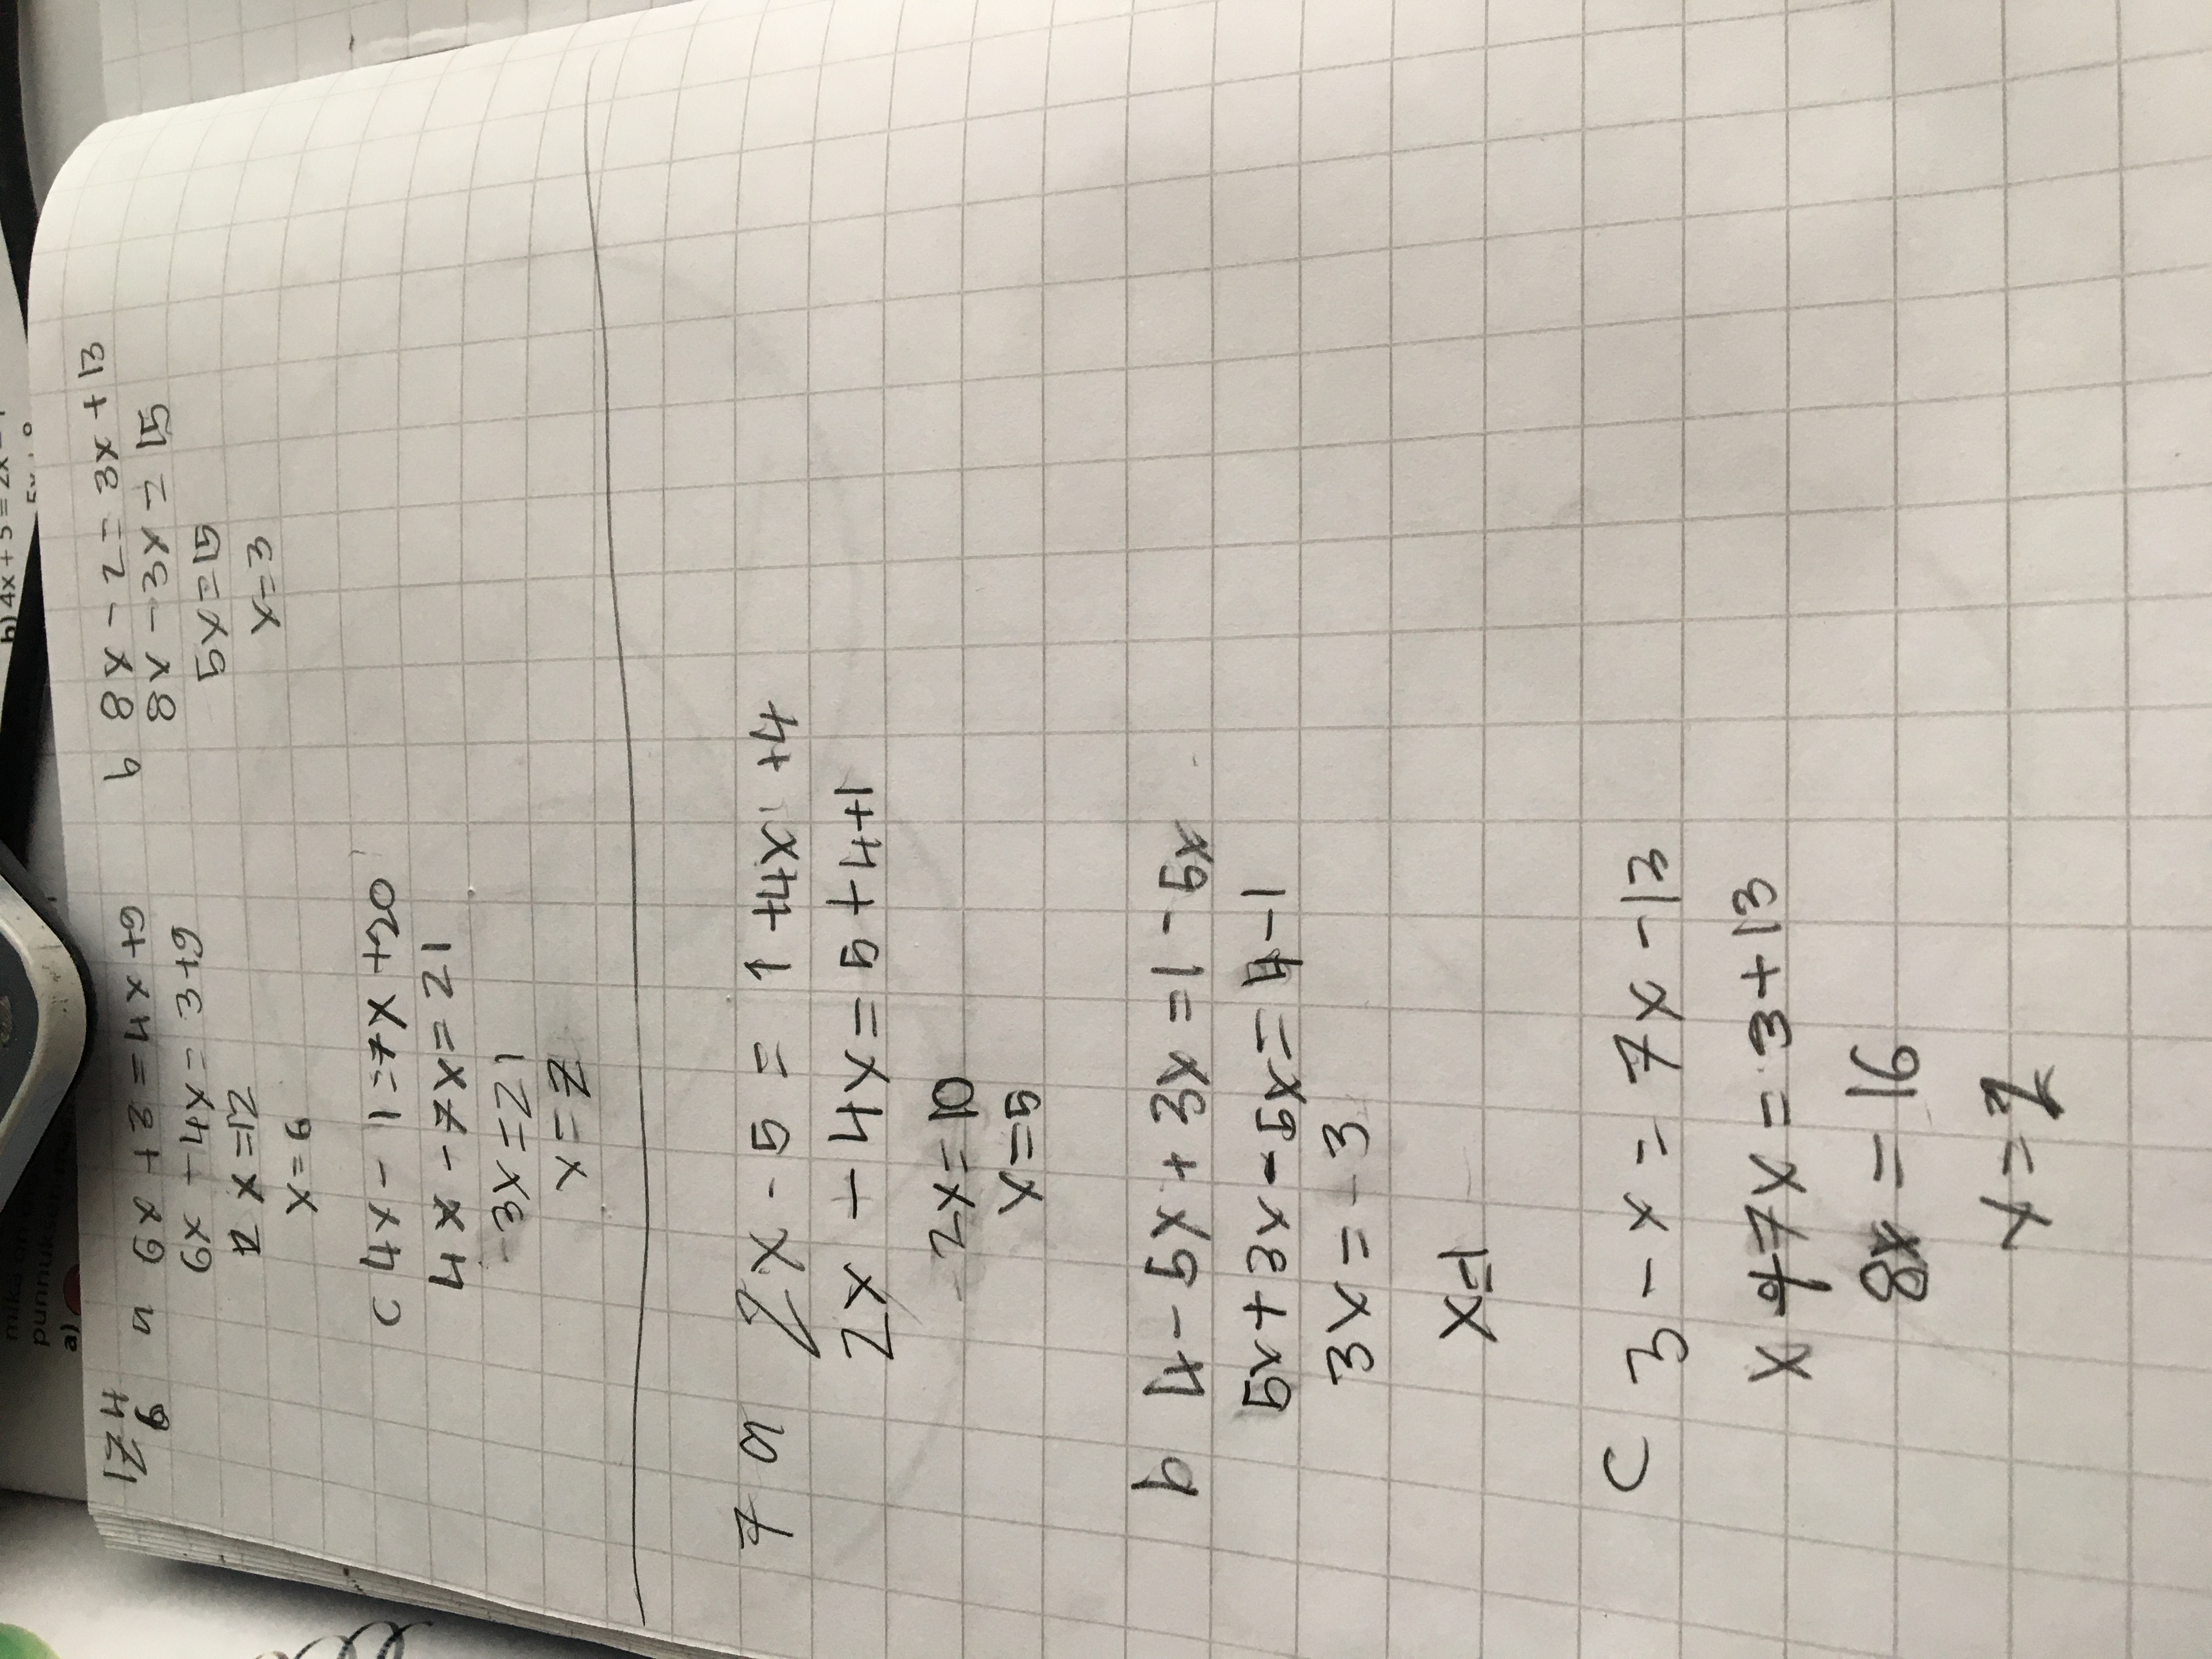 b) 4x + 5 = 2x -
a)
124
6 a 6x + 3 = 4x + 9
6x - 4x = 3 + 9
2x = 12
x = 6
b 8x - 2 = 3x + 13
8x - 3x = 15
5x = 15
x = 3
c 4x - 1 = 7x + 20
4x - 7x = 21
-3x = 21
x = 7
7 a 2x - 5 = 1 + 4x + 4
2x - 4x = 5 + 4 + 1
-2x = 10
x = 5
b 4 - 5x + 3x = 1 - 5x
5x + 3x - 5x = 4 - 1
3x = -3
x = 1
c 3 - x = 7x - 13
x + 7x = 3 + 13
8x = 16
x = 2